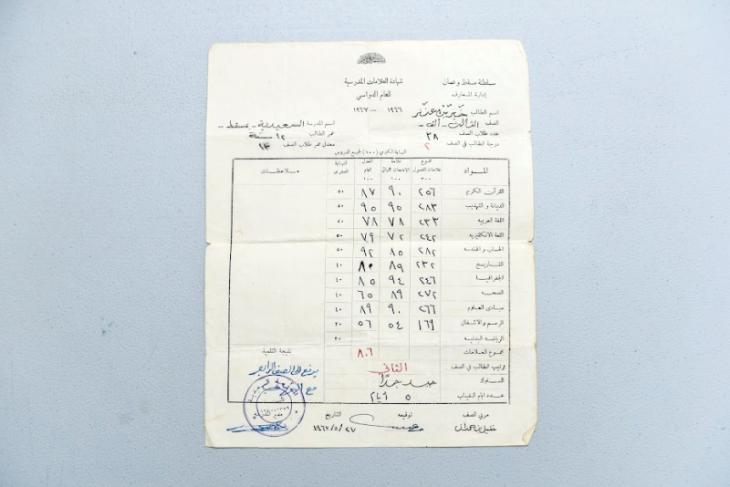 سلطنة مسقط وعمان
ادارة المعارف
شهادة العلامات المدرسية
للعام الدراسي
١٩٦٦ — ١٩٦٧
اسم الطالب
الصف الثالث - الف -
اسم المدرسة السعيدية - مسقط
عدد طلاب الصف ٢٨
عمر الطالب ١٢ سنة
درجة الطالب في الصف ٢
معدل عمر طلاب الصف ١٣
النهاية الكبرى (١٠٠) لجميع الدروس
المواد مجموع علامات الفصول ٣٠٠ علامة الامتحان النهائي ١٠٠ المعدل العام ١٠٠ النهاية الصغرى ملاحظات
القرآن الكريم ٢٥٦ ٩٠ ٨٧ ٥٠
الديانة و التهذيب ٢٨٣ ٩٥ ٩٥ ٥٠
اللغة العربية ٢٣٣ ٧٨ ٧٨ ٥٠
اللغة الانكليزية ٢٤٢ ٧٢ ٧٩ ٥٠
الحساب و الهندسه ٢٨٢ ٨٥ ٩٢ ٥٠
التاريخ ٢٣٢ ٨٩ ٨٠ ٤٠
الجغرافيا ٢٤٦ ٩٤ ٨٥ ٤٠
الصحه ٢٧٢ ٨٩ ٦٥ ٤٠
مبادئ العلوم ٢٦٦ ٩٠ ٨٩ ٤٠
الرسم والاشغال ١٦٩ ٥٤ ٥٦ ٣٠
الرياضة البدنية ٣٠
مجموع العلامات ٨٠٦ نتيجة التلميذ
ترتيب الطالب في الصف الثاني يرفع الى الصف الرابع
السلوك حميد جداً
عدد ايام الغياب ٥ ايام
مربي الصف توقيعه التاريخ مدير المدرسة
١٩٦٧/٥/٢٧